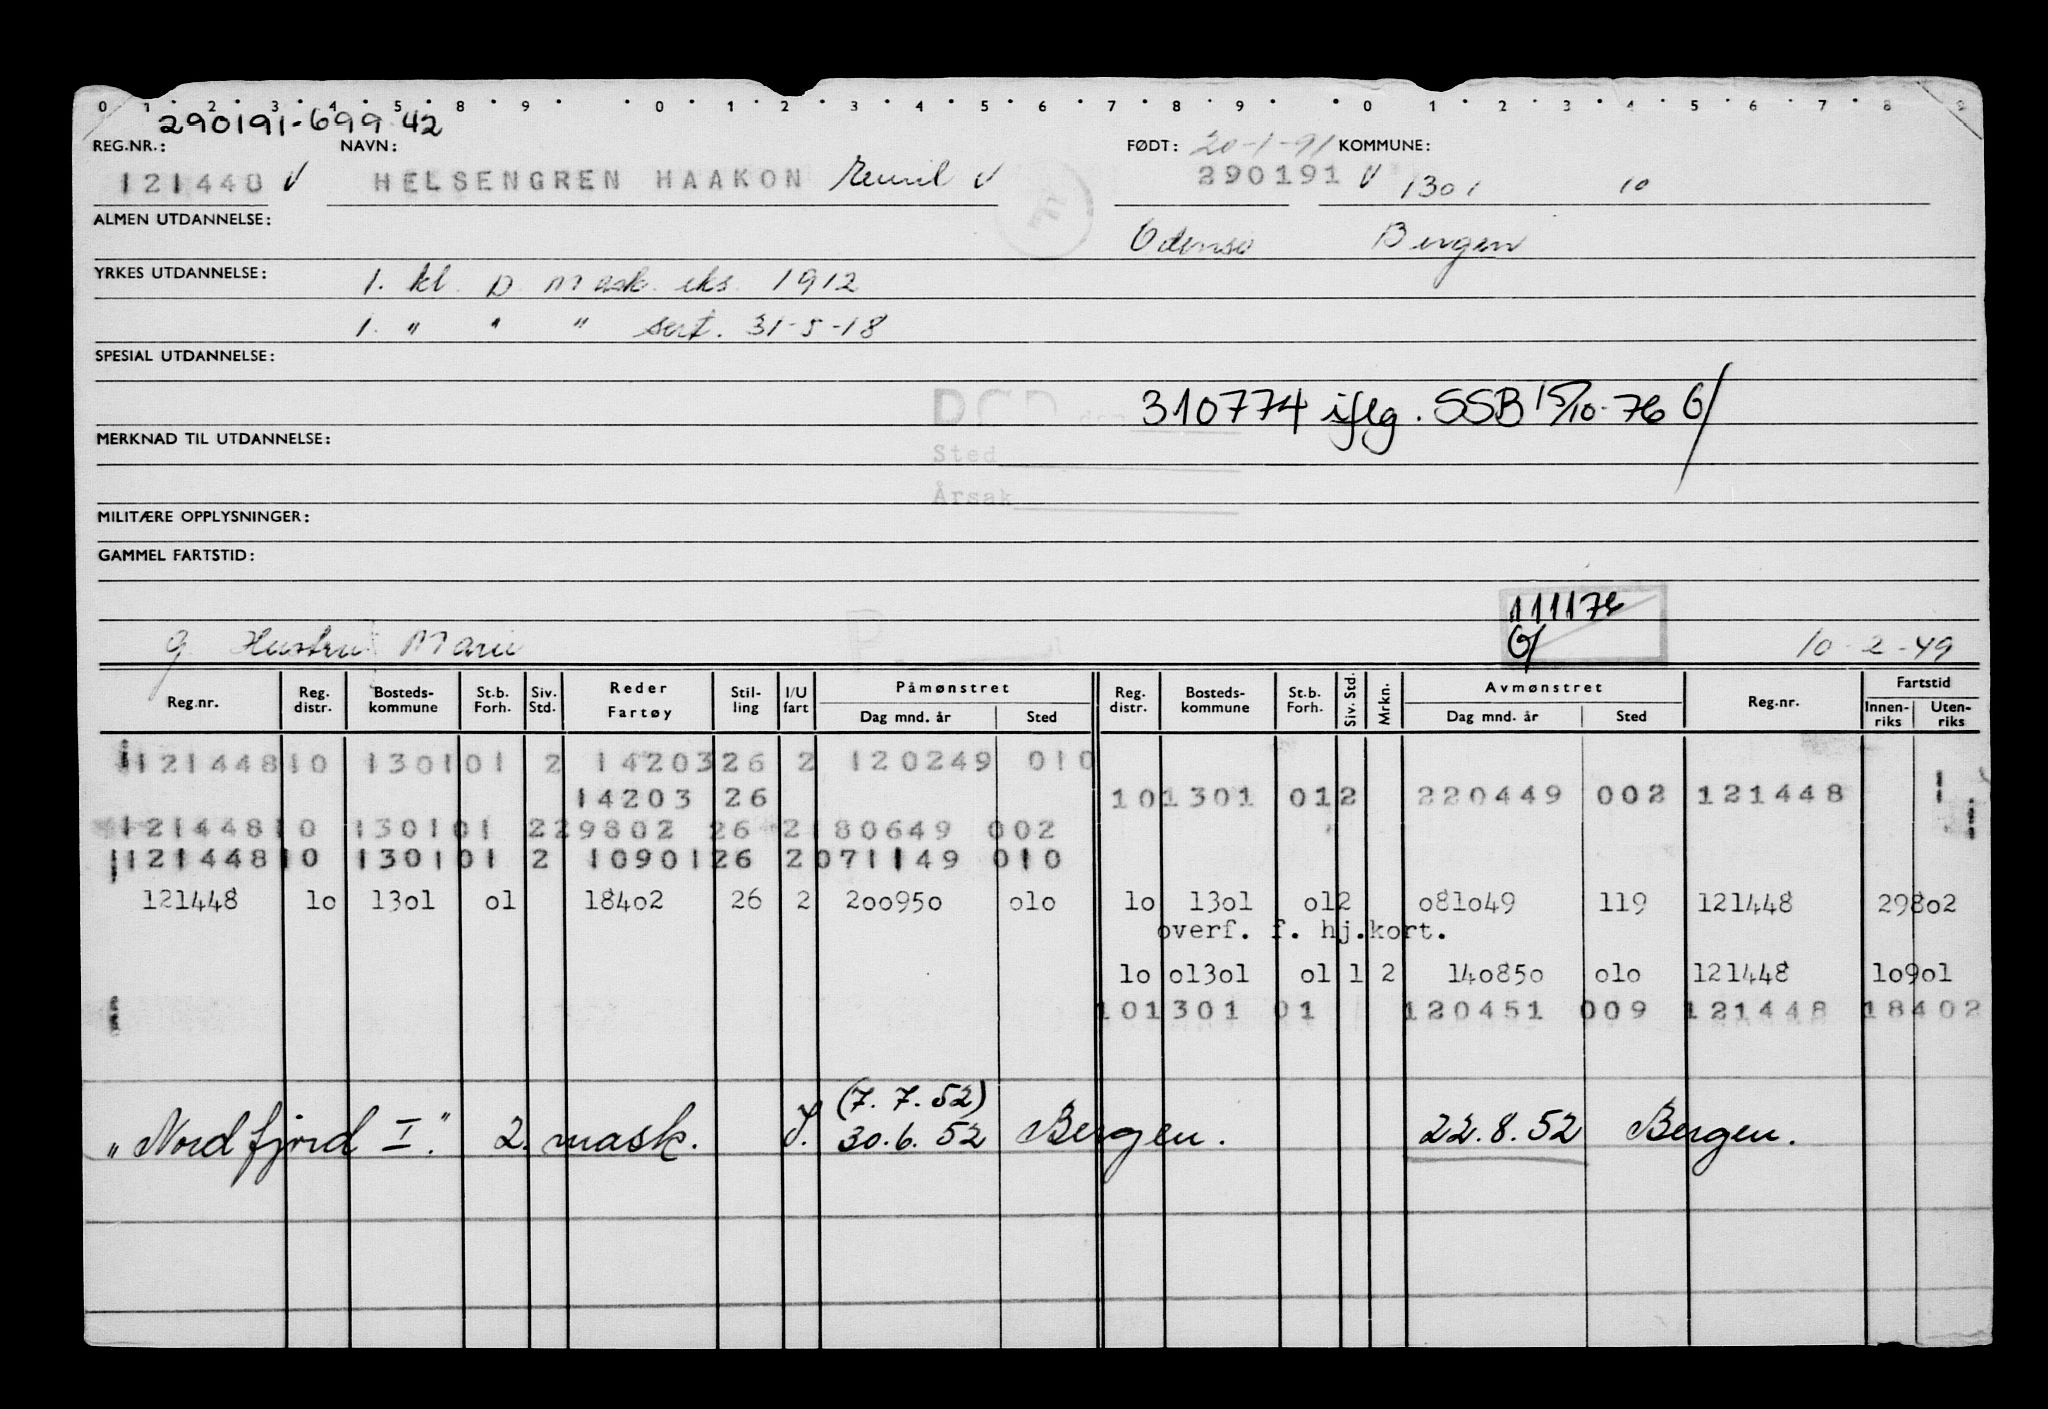 0 1 2 3 4 5 8 9 0 1 2 3 4 5 6 7 8 9 0 1 2 3 4 5 6 7 8 9
290191-699 42
REG.NR.: NAVN: FØDT: 20-1-91 KOMMUNE:
121448 V HELSENGREN HAAKON V 290191 V 1301 10
ALMEN UTDANNELSE: Odense Bergen
YRKES UTDANNELSE: 1. kl. D Mask. eks. 1912
1. " " " sert. 31-5-18
SPESIAL UTDANNELSE:
310774 iflg. SSB 15/10-76 G/
MERKNAD TIL UTDANNELSE:
Sted
Årsak
MILITÆRE OPPLYSNINGER:
GAMMEL FARTSTID:
111176
G/
g Hustru Marie 10-2-49
Reg.nr. Reg. distr. Bosteds-kommune St.b. Forh. Siv. Std. Reder Fartøy Stil-ling I/U fart Påmønstret Dag mnd. år Sted Reg. distr. Bosteds-kommune St.b. Forh. Siv. Std. Mrkn. Avmønstret Dag mnd. år Sted Reg.nr. Fartstid Innen-riks Uten-riks
121448 10 1301 01 2 14203 26 2 120249 010
14203 26 10 1301 01 2 220449 002 121448
121448 10 1301 01 2 29802 26 2 180649 002
121448 10 1301 01 2 10901 26 2 071149 010
121448 10 1301 01 18402 26 2 200950 010 10 1301 01 2 081049 119 121448 29802
overf. f. hj.kort.
10 01301 01 1 2 140850 010 121448 10901
10 1301 01 120451 009 121448 18402
(7. 7. 52)
"Nordfjord I". 2. mask. J. 30. 6. 52 Bergen. 22. 8. 52 Bergen.